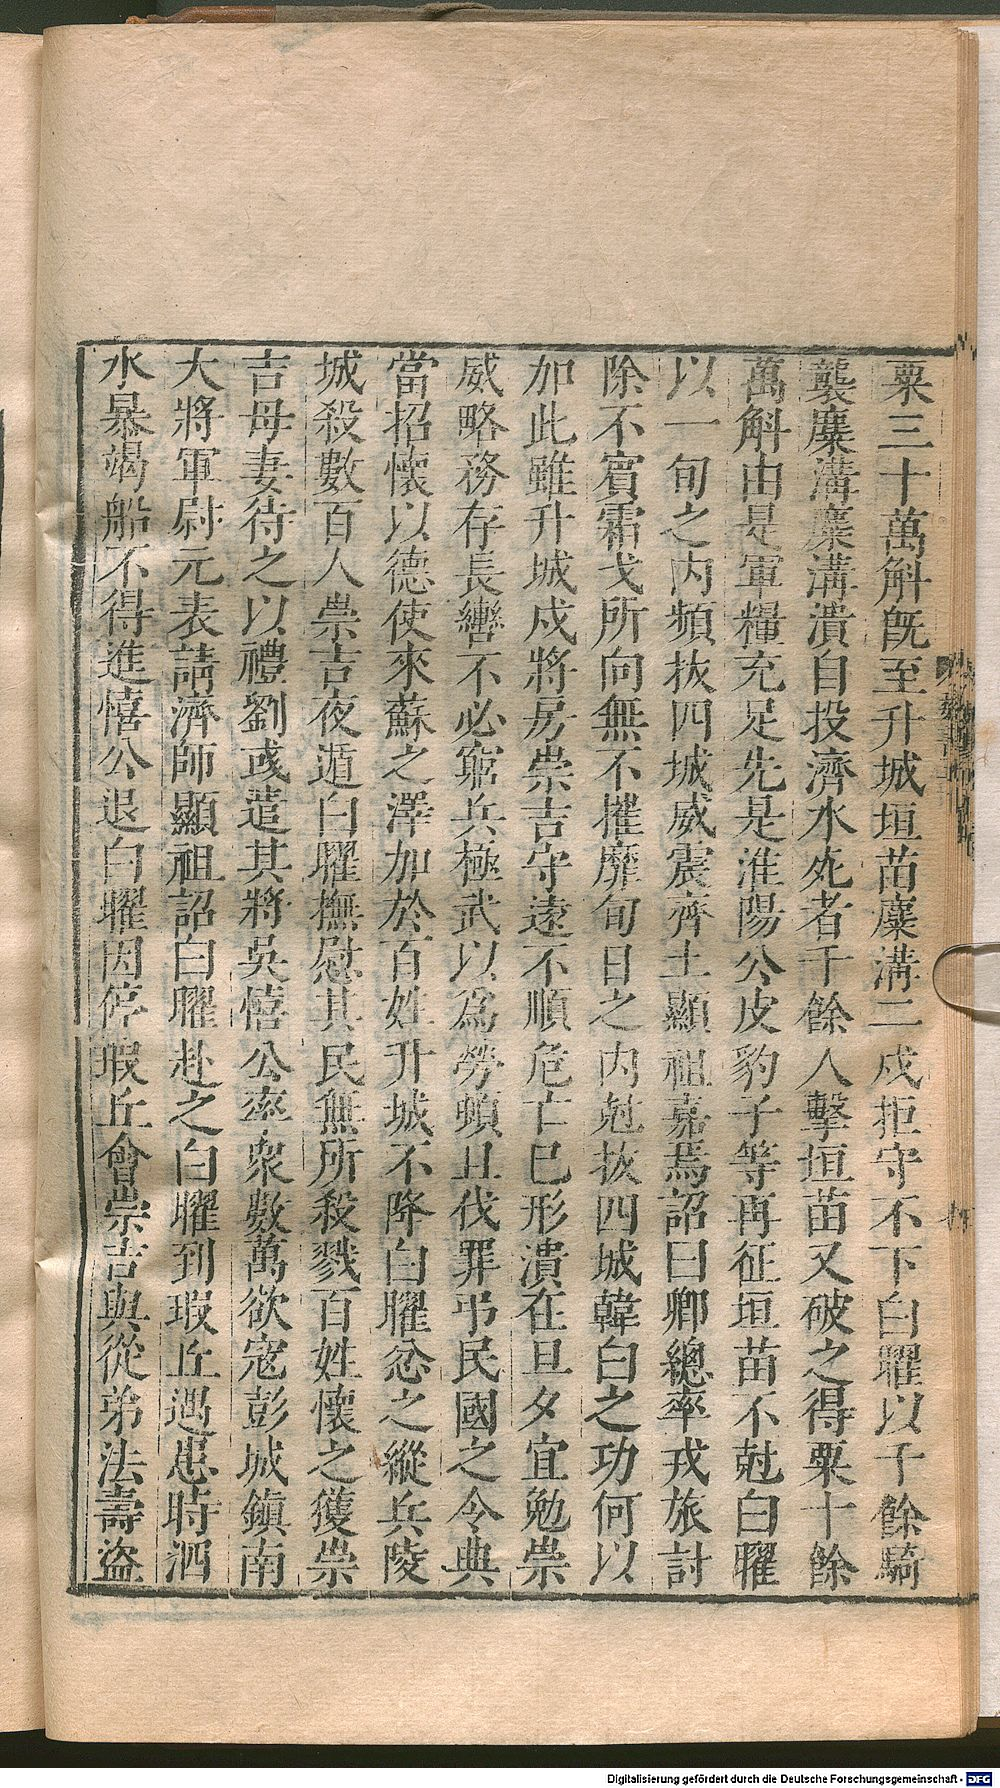 粟三十萬斛旣至升城垣苗麋溝二戍拒守不下白曜以千餘騎
襲麋溝麋溝潰自投濟水死者千餘人擊垣苗又破之得粟十餘
萬斛由是軍糧充足先是淮陽公皮豹子等再征垣苗不尅白曜
以一旬之内頻拔四城威震齊土顯祖嘉焉詔曰卿總率戎旅討
除不賓霜戈所向無不摧靡旬日之内尅拔四城韓白之功何以
加此雖升城戍將房崇吉守遠不順危亡已形潰在旦夕宜勉崇
威略務存長轡不必窮兵極武以爲勞頓且伐罪弔民國之令典
當招懷以德使來蘇之澤加於百姓升城不降白曜忿之縱兵陵
城殺數百人崇吉夜遁白曜撫慰其民無所殺戮百姓懷之獲崇
吉母妻待之以禮劉彧遣其將吳憘公率衆數萬欲寇彭城鎮南
大將軍尉元表請濟師顯祖詔白曜赴之白曜到瑕丘遇患時泗
水暴竭船不得進憘公退白曜因停瑕丘會崇吉與從弟法壽盜
Digitalisierung gefördert durch die Deutsche Forschungsgemeinschaft - DFG